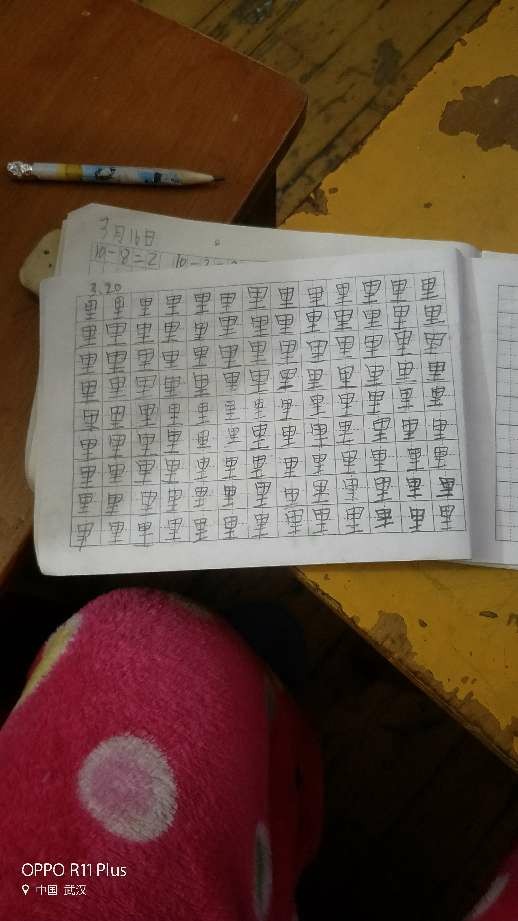 3月16日
10-8=2 10-3=
3.20
里里里里里里里里里里里里里
里里里里里里里里里里里里里
里里里里里里里里里里里里里
里里里里里里里里里里里里里
里里里里里里里里里里里里里
里里里里里里里里里里里里里
里里里里里里里里里里里里里
里里里里里里里里里里里里里
里里里里里里里里里里里里里
OPPO R11 Plus
中国 武汉